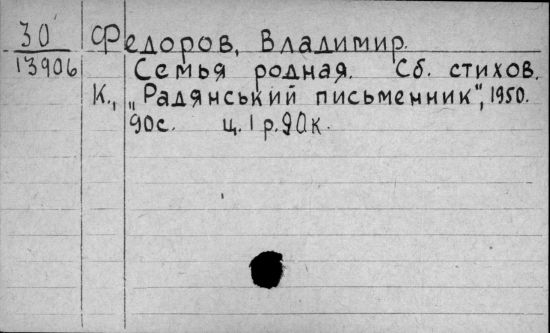 30 Федоров, Владимир.
13906 Семья родная. Сб. стихов.
К., „Радянський письменник", 1950.
90с. ц. 1 р. 90к.